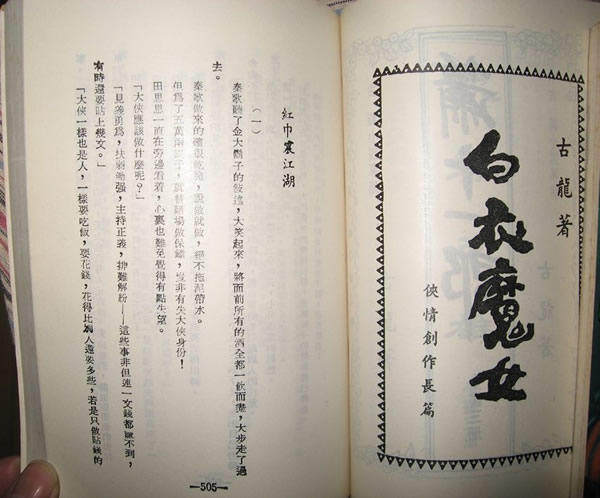 古龍著
白衣魔女
俠情創作長篇
紅巾震江湖
(一)
秦歌聽了金大鬍子的敘述,大笑起來,將面前所有的酒全都一飲而盡,大步走了過
去。
秦歌做來的確很乾脆,說做就做,絕不拖泥帶水。
但爲了五萬兩銀子,就替賭場做保鏢,豈非有失大俠身份!
田思思一直在旁邊看着,心裏也難免覺得有點失望。
「大俠應該做什麼呢?」
「見義勇爲,扶弱鋤强,主持正義,排難解紛——這些事非但連一文錢都賺不到,
有時還要貼上幾文。」
「大俠一樣也是人,一樣要吃飯,要花錢,花得比別人還要多些,若是只做貼錢的
—505—